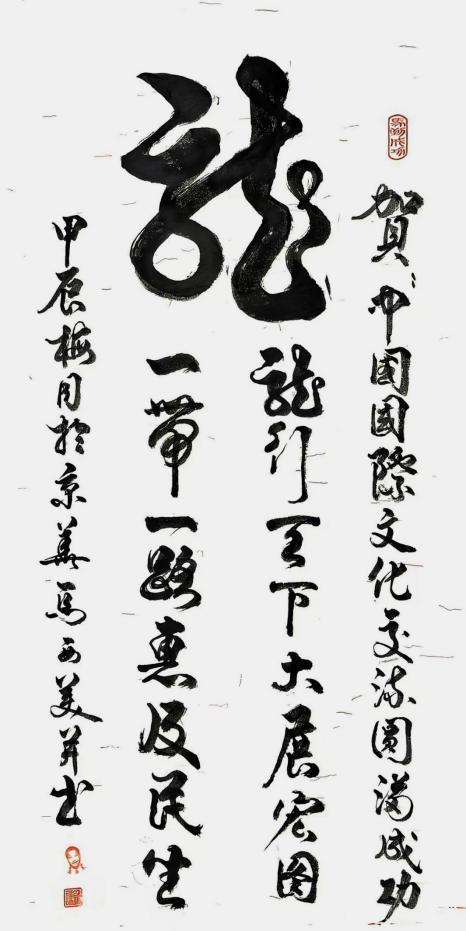 賀中國國際文化交流圓滿成功
龍
龍行天下大展宏图
一带一路惠及民生
甲辰梅月於京馬西美并书